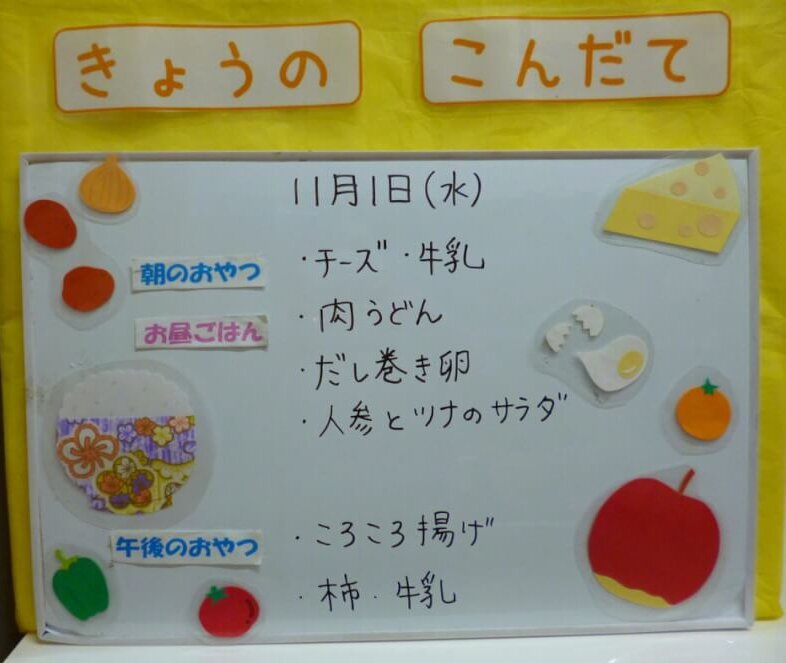 きょうの こんだて
11月1日(水)
朝のおやつ ・チーズ・牛乳
お昼ごはん ・肉うどん
・だし巻き卵
・人参とツナのサラダ
午後のおやつ ・ころころ揚げ
・柿・牛乳